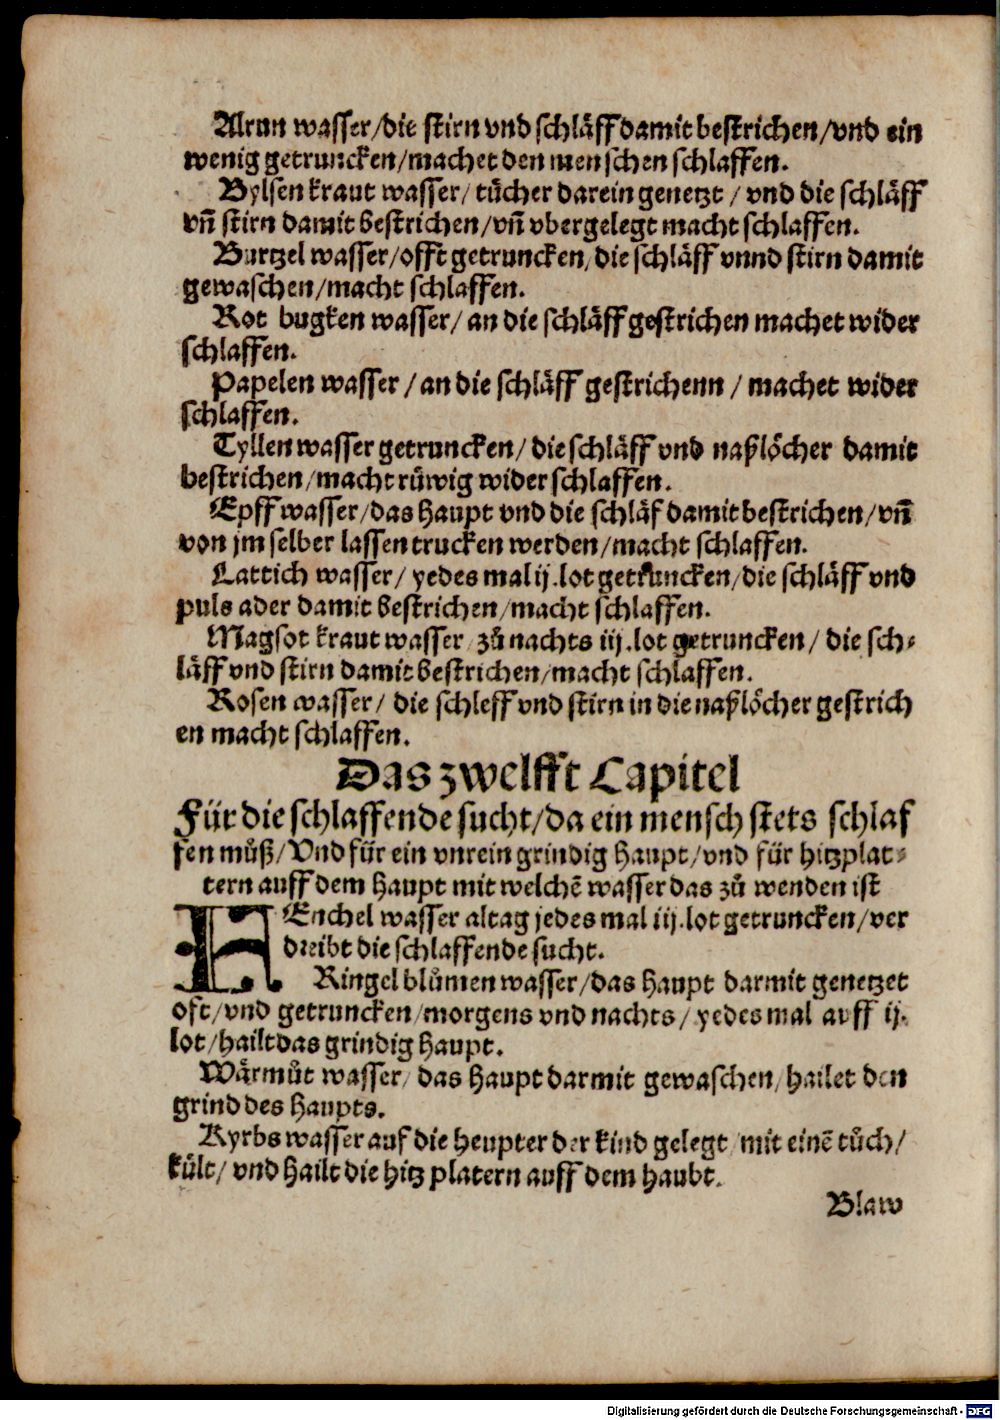 Alrun wasser/die stirn vnd schläff damit bestrichen/vnd ein
wenig getruncken/machet den menschen schlaffen.
Bylsen kraut wasser/ tücher darein genetzt / vnd die schläff
vñ stirn damit bestrichen/vñ vbergelegt macht schlaffen.
Burtzel wasser/offt getruncken/die schläff vnnd stirn damit
gewaschen/macht schlaffen.
Rot bugken wasser/ an die schläff gestrichen machet wider
schlaffen.
Papelen wasser / an die schläff gestrichenn / machet wider
schlaffen.
Tyllen wasser getruncken/ die schläff vnd naßlöcher damit
bestrichen/macht rüwig wider schlaffen.
Epff wasser/das haupt vnd die schläf damit bestrichen/vñ
von jm selber lassen trucken werden/macht schlaffen.
Lattich wasser/ yedes mal ij.lot getruncken/die schläff vnd
puls ader damit bestrichen/macht schlaffen.
Magsot kraut wasser/ zů nachts iij.lot getruncken/ die sch⸗
läff vnd stirn damit bestrichen/macht schlaffen.
Rosen wasser/ die schleff vnd stirn in die naßlöcher gestrich
en macht schlaffen.
Das zwelfft Capitel
Für die schlaffende sucht/da ein mensch stets schlaf
fen můß/Vnd für ein vnrein grindig haupt/vnd für hitzplat⸗
tern auff dem haupt mit welchẽ wasser das zů wenden ist
FEnchel wasser altag jedes mal iij.lot getruncken/ver
dreibt die schlaffende sucht.
Ringel blůmen wasser/das haupt darmit genetzet
oft/vnd getruncken/morgens vnd nachts/ yedes mal auff ij.
lot/hailt das grindig haupt.
Wärmůt wasser/ das haupt darmit gewaschen/hailet den
grind des haupts.
Kyrbs wasser auf die heupter der kind gelegt/mit einẽ tůch/
kült/ vnd hailt die hitz platern auff dem haubt.
Blaw
Digitalisierung gefördert durch die Deutsche Forschungsgemeinschaft - DFG